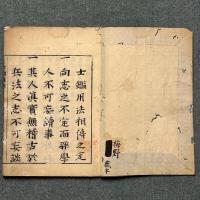 士鑑用法相傳之定
一向志之不定而雖學
人不可妄讀事
一其人真實無稽古於
兵法之志不可妄談
梅野